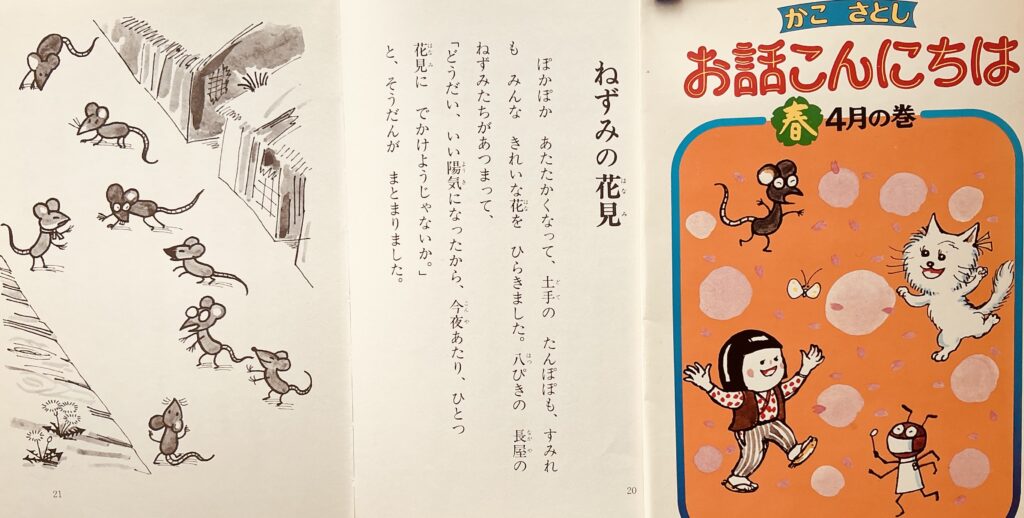 かこ さとし
お話こんにちは
春 4月の巻
ねずみの花見
ぽかぽか あたたかくなって、土手の たんぽぽも、すみれ
も みんな きれいな花を ひらきました。八ぴきの 長屋の
ねずみたちがあつまって、
「どうだい、いい陽気になったから、今夜あたり、ひとつ
花見に でかけようじゃないか。」
と、そうだんが まとまりました。
20
21